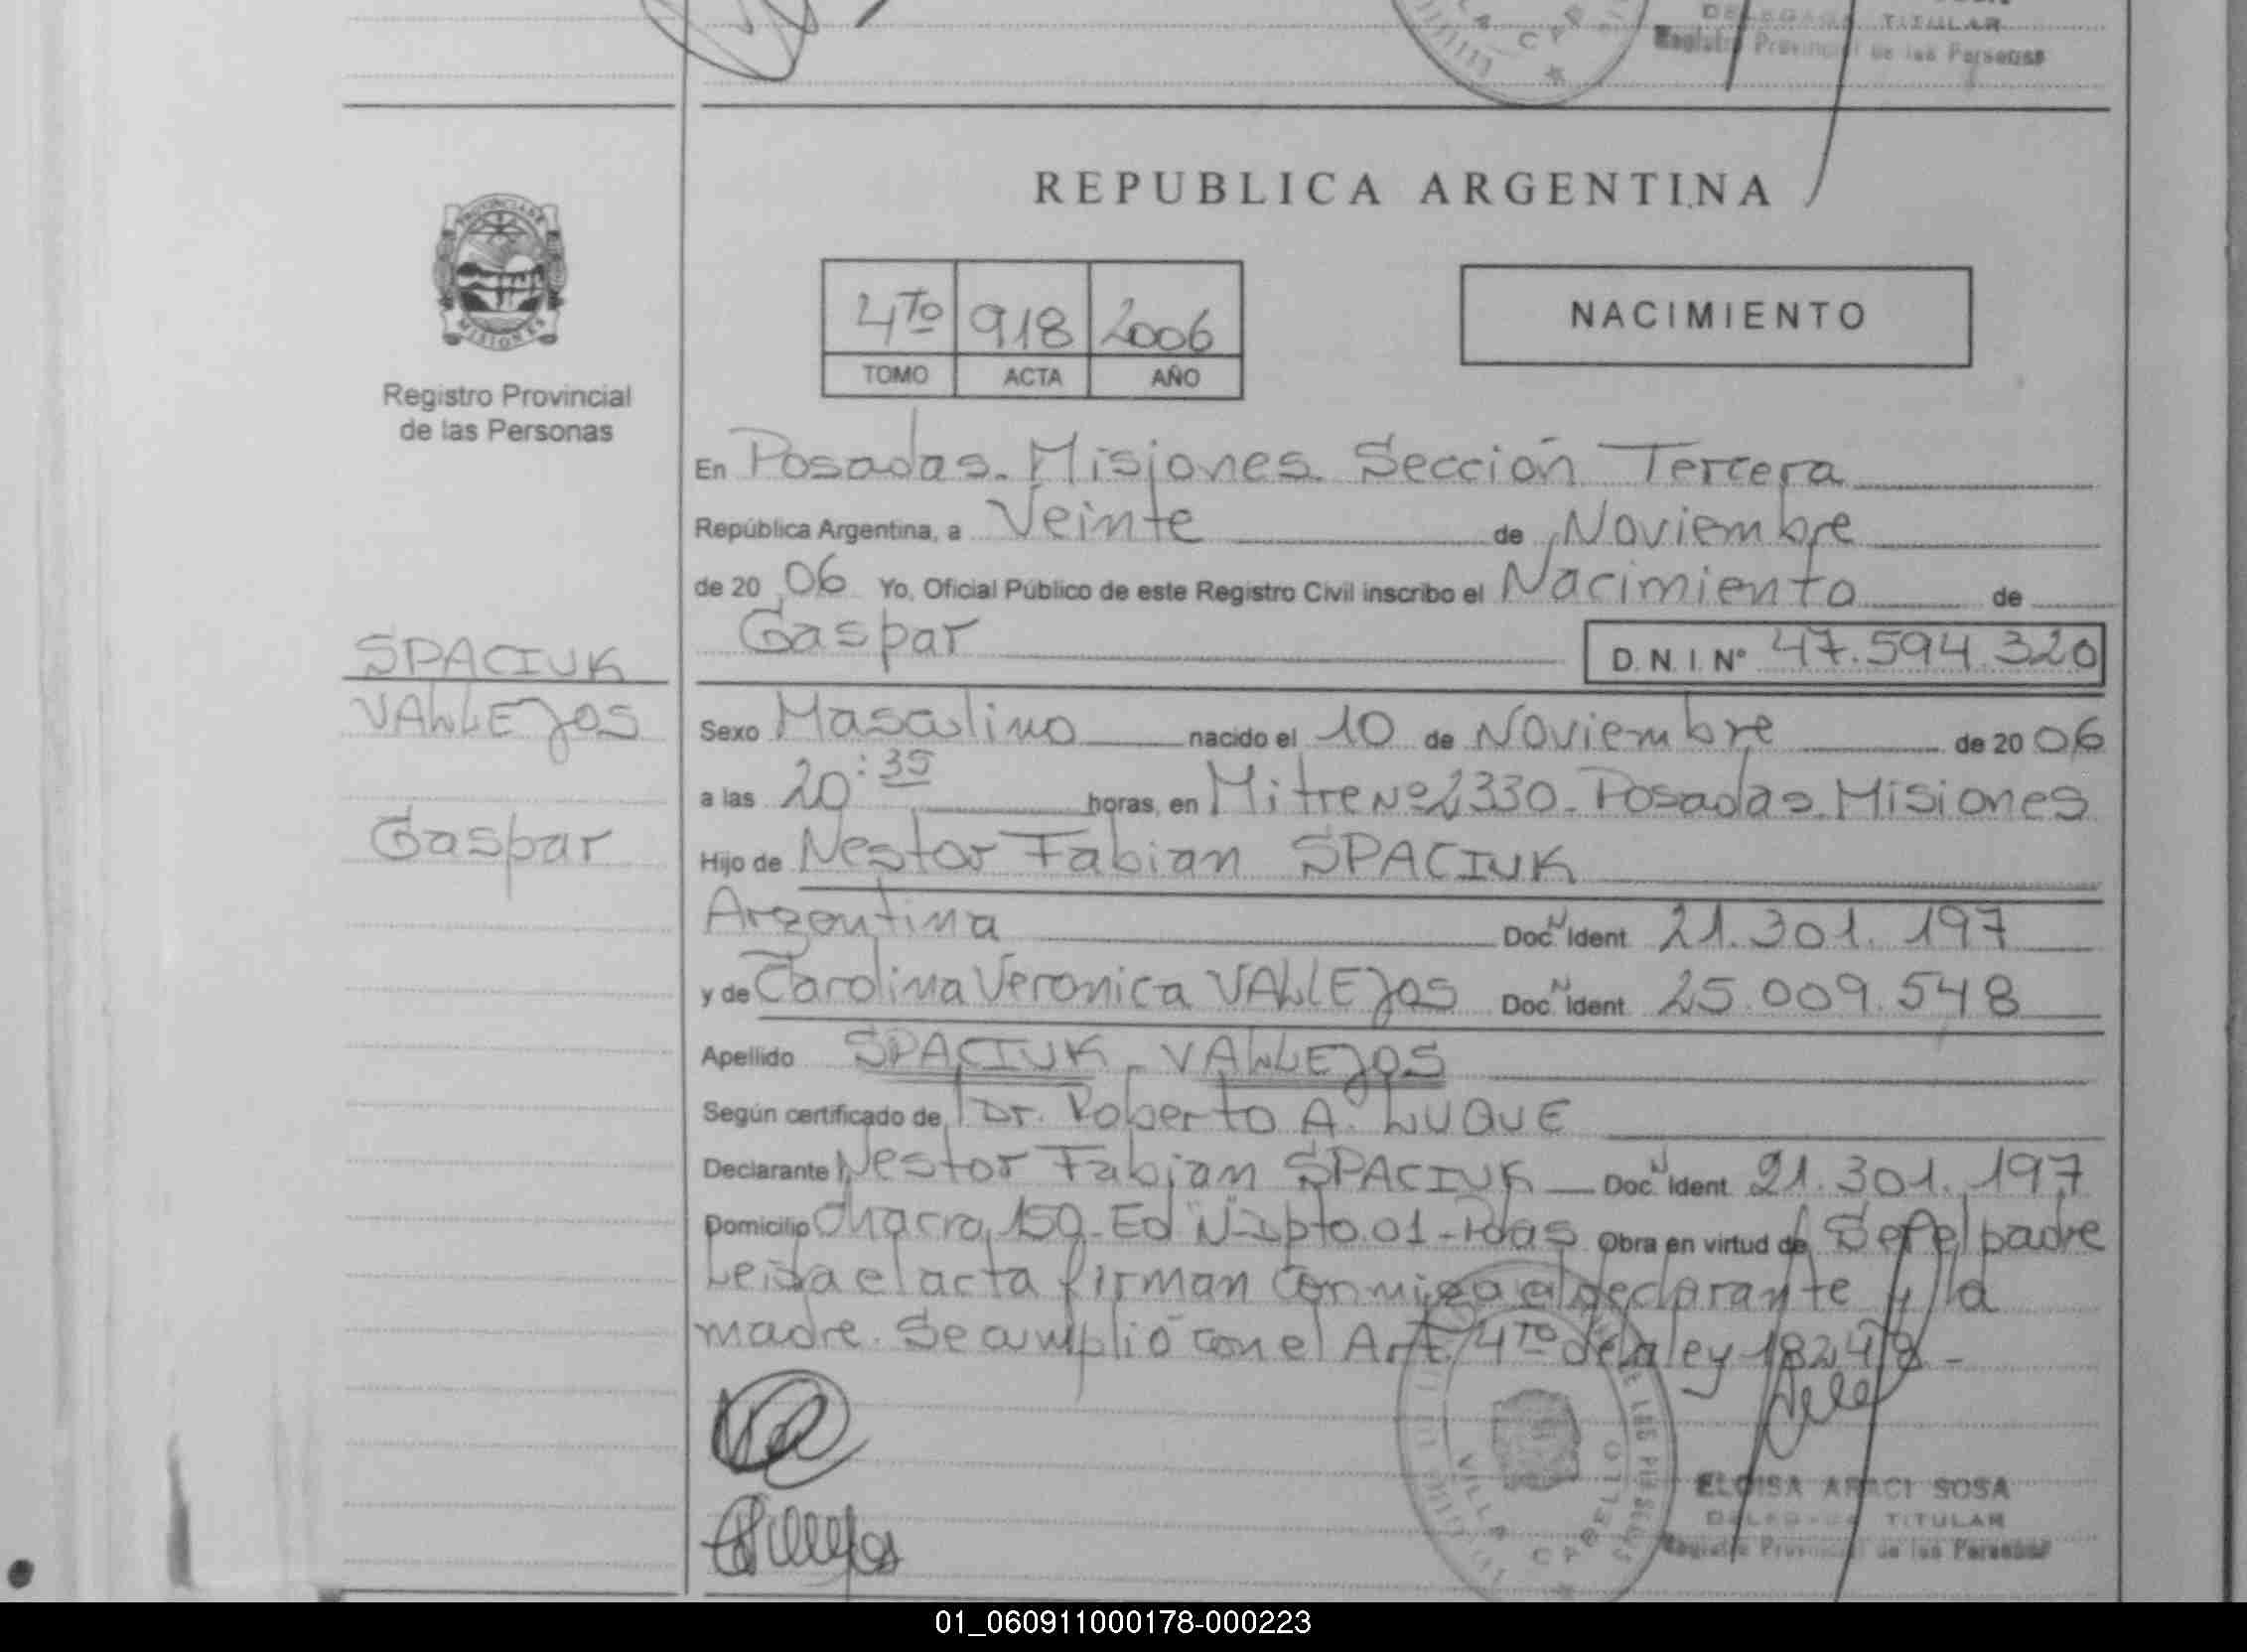 DELEGADA TITULAR
Registro Provincial de las Personas
REPUBLICA ARGENTINA
PROVINCIA DE
MISIONES
Registro Provincial
de las Personas
4TO 918 2006
TOMO ACTA AÑO
NACIMIENTO
En Posadas. Misiones. Sección Tercera
República Argentina, a Veinte de Noviembre
de 20 06 Yo, Oficial Público de este Registro Civil inscribo el Nacimiento de
Gaspar D.N.I. Nº 47.594.320
SPACIUK
VALLEJOS
Gaspar
Sexo Masculino nacido el 10 de Noviembre de 20 06
a las 20:35 horas, en Mitre Nº 2330 - Posadas. Misiones
Hijo de Nestor Fabian SPACIUK
Argentina Doc. N Ident. 21.301.197
y de Carolina Veronica VALLEJOS Doc. N Ident. 25.009.548
Apellido SPACIUK - VALLEJOS
Según certificado de Dr. Roberto A. LUQUE
Declarante Nestor Fabian SPACIUK Doc. N Ident. 21.301.197
Domicilio Chacra 150 - Ed "N" Dpto. 01 - Pdas Obra en virtud de Ser el padre
Leida el acta firman conmigo el declarante y la
madre. Se amplió con el Art. 4TO de la ley 18248 -
VILLA CABELLO
ELOISA ARACI SOSA
DELEGADA TITULAR
Registro Provincial de las Personas
01_060911000178-000223